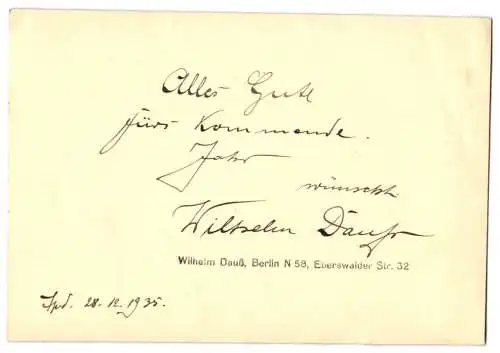 Alles Gute
fürs kommende
Jahr
wünscht
Wilhelm Dauß
Wilhelm Dauß, Berlin N 58, Eberswalder Str. 32
28.12.1935.